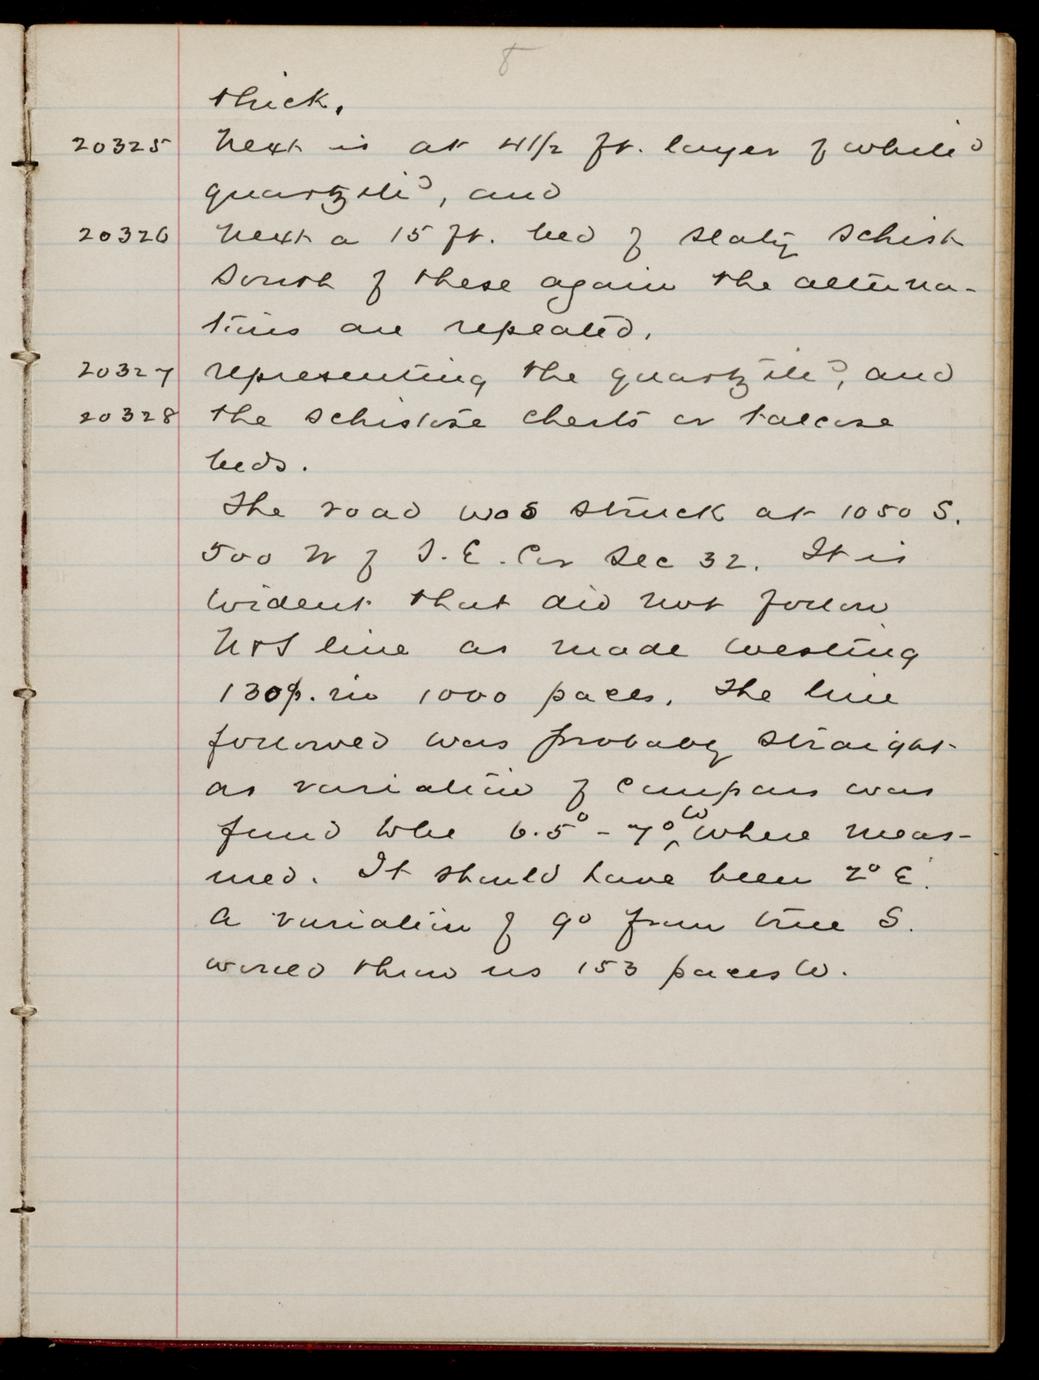 8
thick.
20325 Next is at 4 1/2 ft. layer of white
quartzite, and
20326 Next a 15 ft. bed of slaty schist
South of these again the alterna-
tions are repeated.
20327 representing the quartzite, and
20328 the schistose cherts or talcose
beds.
The road was struck at 1050 S.
500 W of S.E. Cor Sec 32. It is
evident that did not follow
N & S line as made westing
130 p. in 1000 paces. The line
followed was probably straight
as variation of compass was
found to be 6.5° - 7° W where meas-
ured. It should have been 2° E.
A variation of 9° from true S.
would throw us 153 paces W.